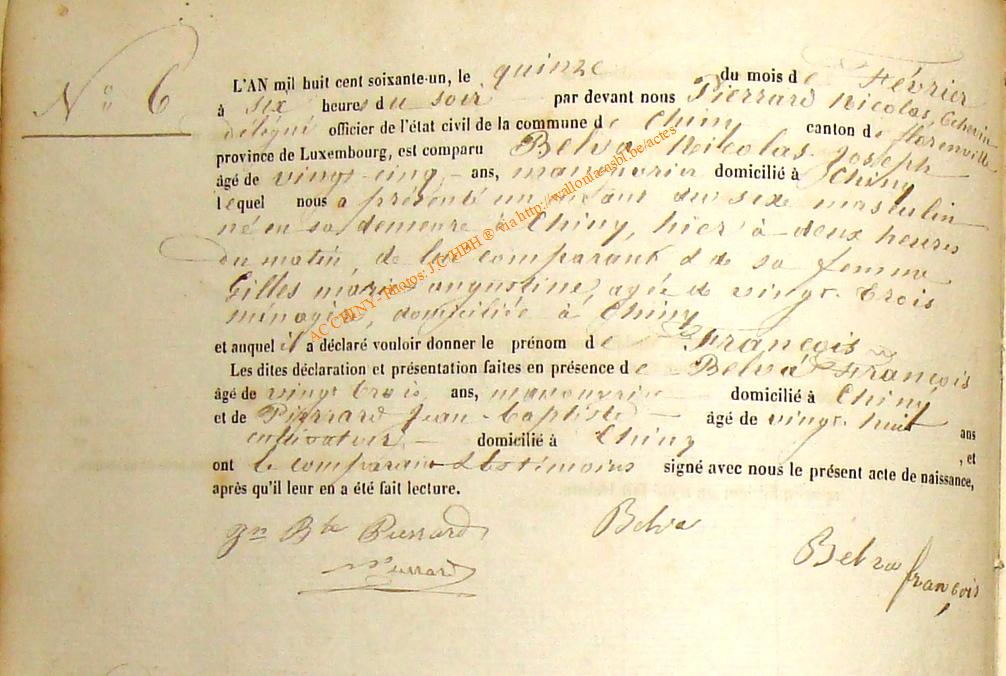 N° 6
L'AN mil huit cent soixante-un, le quinze du mois de Février
à six heures du soir par devant nous Pierrard Nicolas, Echevin
délégué officier de l'état civil de la commune de Chiny canton de florenville
province de Luxembourg, est comparu Belva Nicolas Joseph
âgé de vingt-cinq - ans, manouvrier domicilié à Chiny
lequel nous a présenté un enfant du sexe masculin
né en sa demeure à Chiny, hier à deux heures
du matin, de lui comparant & de sa femme
Gilles marie augustine, agée de vingt-trois
ménagère, domiciliée à Chiny
et auquel il a déclaré vouloir donner le prénom de François
Les dites déclaration et présentation faites en présence de Belva François
âgé de vingt trois ans, manouvrier domicilié à Chiny
et de Pierrard Jean-baptiste - âgé de vingt-huit ans
cultivateur - domicilié à Chiny , et
ont le comparant & les témoins signé avec nous le présent acte de naissance,
après qu'il leur en a été fait lecture.
Jn Bte Pierrard Belva
Belva françois
Pierrard
AC CHINY - Photos: J.C HBH ® via http://wallonia-asbl.be/actes